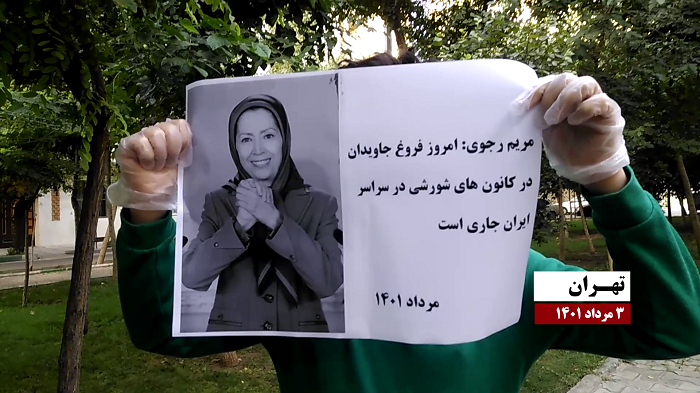 مریم رجوی: امروز فروغ جاویدان
در کانون های شورشی در سراسر
ایران جاری است
مرداد ۱۴۰۱
تهران
۳ مرداد ۱۴۰۱